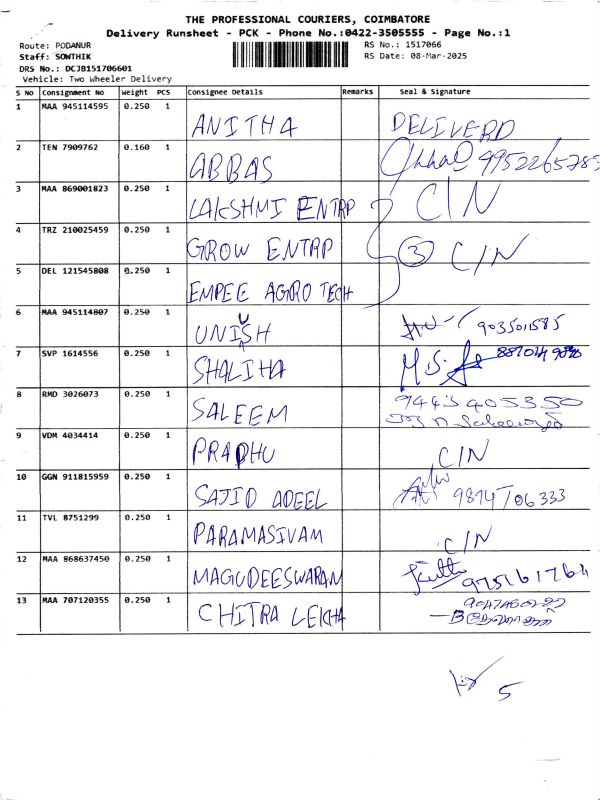 THE PROFESSIONAL COURIERS, COIMBATORE
Delivery Runsheet - PCK - Phone No.:0422-3505555 - Page No.:1
Route: PODANUR
Staff: SOWTHIK
DRS No.: DCJB151706601
Vehicle: Two Wheeler Delivery
RS No.: 1517066
RS Date: 08-Mar-2025
S No Consignment No Weight PCS Consignee Details Remarks Seal & Signature
1 MAA 945114595 0.250 1 ANITHA DELIVERD
2 TEN 7909762 0.160 1 ABBAS 9952265785
3 MAA 869001823 0.250 1 LAKSHMI ENTRP C/N
4 TRZ 210025459 0.250 1 GROW ENTRP 3 C/N
5 DEL 121545808 0.250 1 EMPEE AGRO TECH
6 MAA 945114807 0.250 1 UNISH 903501585
7 SVP 1614556 0.250 1 SHALIHA M.S.
8 RMD 3026073 0.250 1 SALEEM 9443405350
9 VDM 4034414 0.250 1 PRABHU C/N
10 GGN 911815959 0.250 1 SAJID ADEEL 9894706333
11 TVL 8751299 0.250 1 PARAMASIVAM C/N
12 MAA 868637450 0.250 1 MAGUDEESWARAN 975161764
13 MAA 707120355 0.250 1 CHITRA LEKHA
5